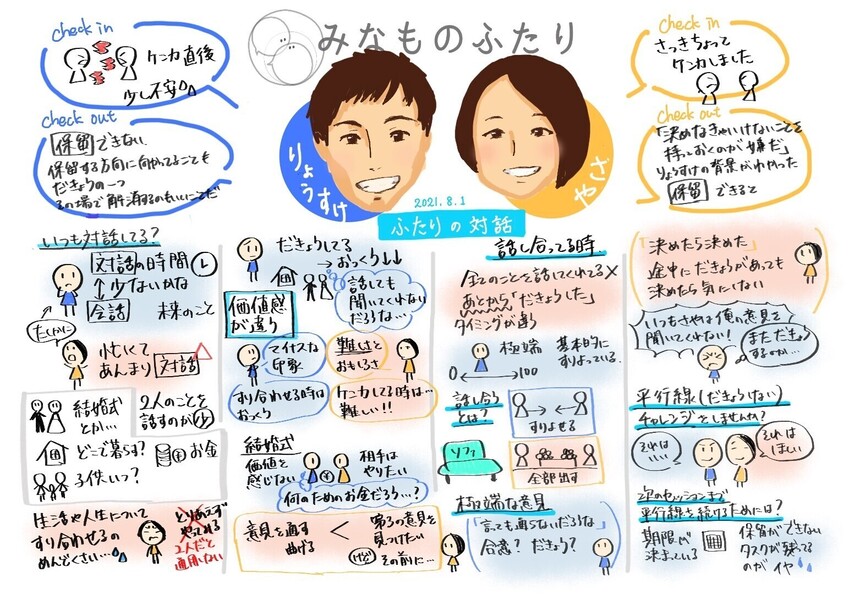 みなものふたり
check in
ケンカ直後
少し不安
check out
保留できない
保留する方向に向かってることも
だきょうの一つ
check in
さっきちょって
ケンカしました
check out
「決めなきゃいけないことを
持っておくのが嫌だ」
りょうすけの背景がわかった
保留できると
りょうすけ
さや
2021.8.1
ふたりの対話
いつも対話してる?
対話の時間
↑少ないかな
↓
会話 未来のこと
たしかに
忙しくて
あんまり対話
結婚式
とか…
2人のことを
話すのが少
どこで暮らす?
お金
子供いつ?
生活や人生について
すり合わせるの
めんどくさい…
とりあえず
やってみる
2人だと
通用しない
だきょうしてる
→おっくう↓↓
話しても
聞いてくれない
だろうな…
価値感
が違う
マイナスな
印象
難しさと
おもしろさ
すり合わせる時は
おっくう
ケンカしてる時は…
難しい!!
結婚式
価値を
感じない
相手は
やりたい
何のためのお金だろう…?
意見を通す
曲げる
<
その前に…
話し合ってる時
全てのことを話してくれてる×
あとから「だきょうした」
タイミングが違う
極端
0 ↔ 100
基本的に
すりよっている.
話し合う
とは?
すりよせる
ソファ
全部出す
極端な意見
「言っても通らないだろうな」
合意? だきょう?
「決めたら決めた」
途中にだきょうがあっても
決めたら気にしない
いつもさやは俺の意見を
聞いてくれない!
まただきょう
するのか…
平行線(だきょうしない)
チャレンジをしませんか?
それは
いい
それは
ほしい
次のセッションまで
平行線を続けるためには?
期限が
決まっている
保留ができない
タスクが残ってる
のがイヤ